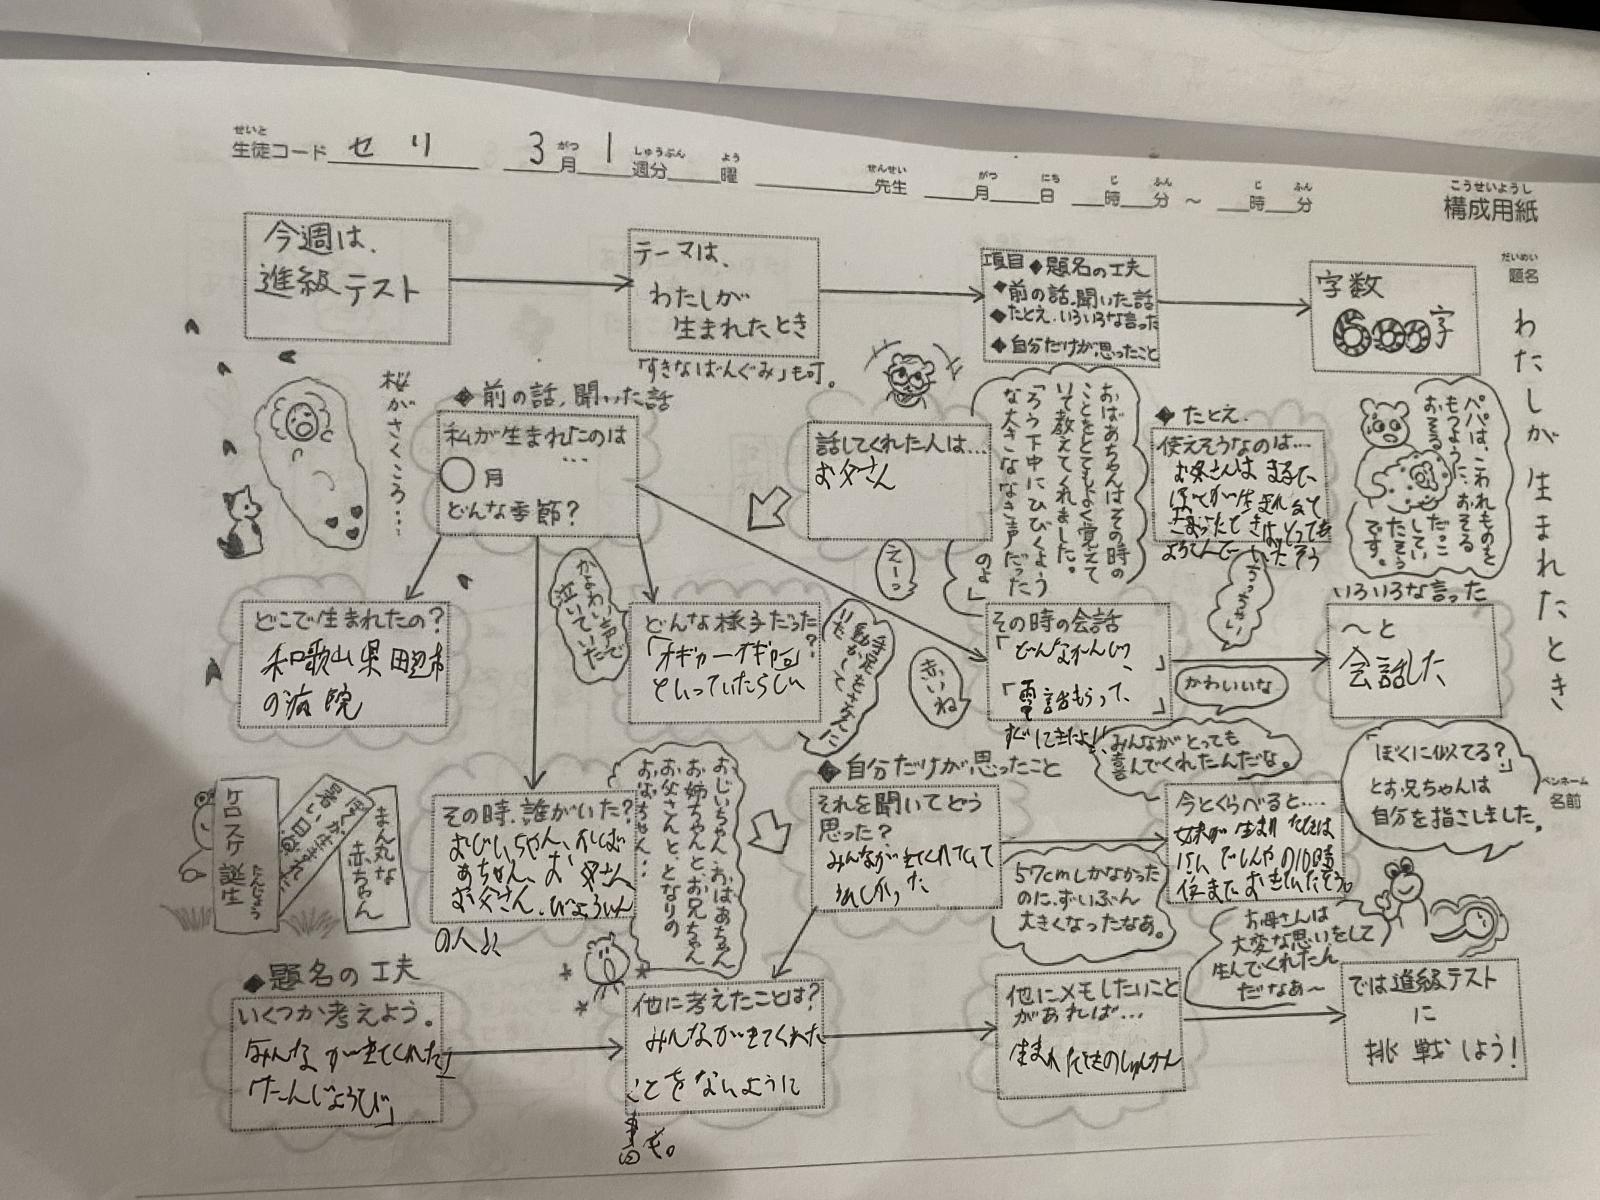 生徒コード セリ 3月1週分 曜 先生 月 日 時 分 ～ 時 分
構成用紙
題名
わたしが生まれたとき
ペンネーム
名前
今週は、
進級テスト
テーマは、
わたしが
生まれたとき
「すきなばんぐみ」も可。
項目◆題名の工夫
◆前の話、聞いた話
◆たとえ、いろいろな言った
◆自分だけが思ったこと
字数
600字
桜がさくころ…
◆前の話、聞いた話
私が生まれたのは
…
〇月
どんな季節?
話してくれた人は…
お父さん
おばあちゃんはその時の
ことをとてもよく覚えて
いて教えてくれました。
「ろう下中にひびくよう
な大きななき声だった
のよ」
◆たとえ
使えそうなのは…
お父さんは まるで、
パパは、こわれものを
もつように、おそる
おそる
だっこ
してい
たそう
です。
どこで生まれたの?
和歌山県田辺市
の病院
かよわい声で
泣いていた
どんな様子だった?
「オギャーオギャー」
といっていたらしい
手足をさかんに
動かして
いた
えーっ
赤いね
その時の会話
「どんなかんじ?」
「電話もらって、
すぐ
ちっちゃい
かわいいな
いろいろな言った
～と
会話した
「ぼくに似てる?」
とお兄ちゃんは
自分を指さしました。
みんながとっても
喜んでくれたんだな。
ケロスケ誕生
ぼくが生まれた
暑い日
まん丸な
赤ちゃん
その時、誰がいた?
おじいちゃん、
お父さん、びょういん
の人
おじいちゃん、おばあちゃん
お姉ちゃんと、お兄ちゃん
お父さんと、となりの
おばちゃん…
◆自分だけが思ったこと
それを聞いてどう
思った?
みんながきてくれていて
うれしかった
57cmしかなかった
のに、ずいぶん
大きくなったなあ。
今とくらべると…
妹が生まれたときは
お母さんは
大変な思いをして
生んでくれたん
だなあ～
◆題名の工夫
いくつか考えよう。
「みんながきてくれた
たんじょうび」
他に考えたことは?
みんながきてくれた
ことを
他にメモしたいこと
があれば…
生まれたときのしゃしん
では進級テスト
に
挑戦しよう!